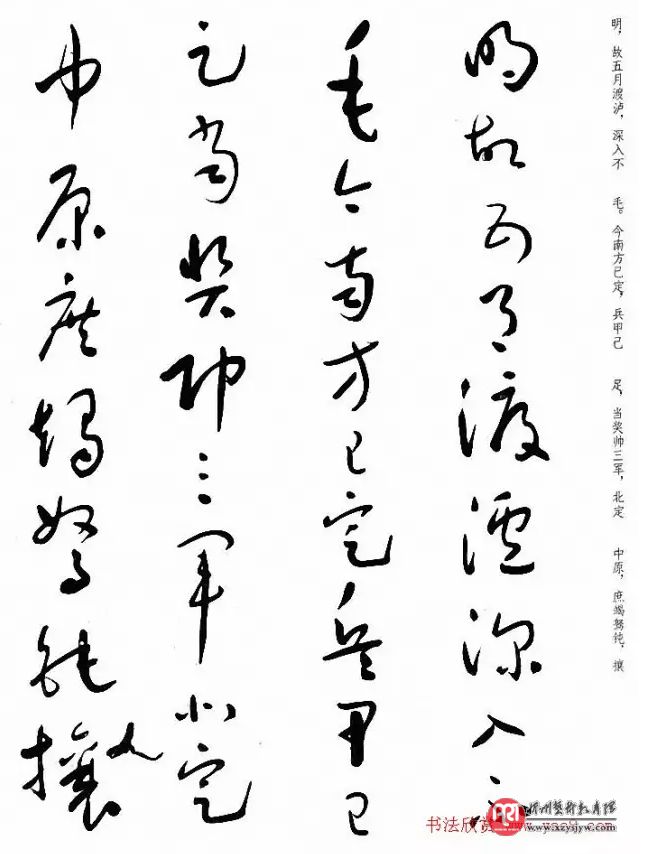 明故五月渡泸深入不
毛今南方已定兵甲已
足当奖帅三军北定
中原庶竭驽钝攘
明，故五月渡泸，深入不
毛。今南方已定，兵甲已
足，当奖帅三军，北定
中原，庶竭驽钝，攘
书法欣赏
www.xzysjyw.com